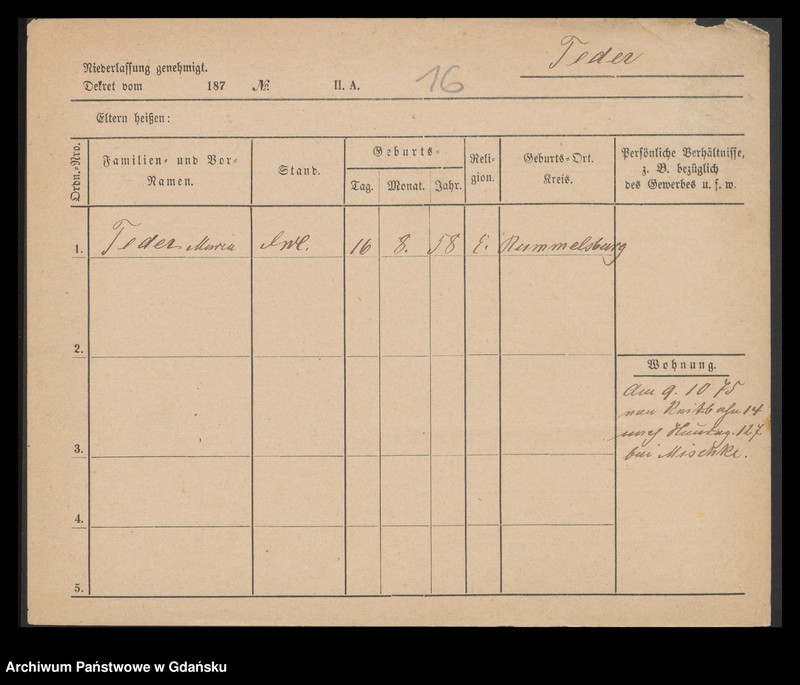 Teder
Niederlassung genehmigt.
Dekret vom 187 № II. A. 16
Eltern heißen:
Ordn.-Nro.
Familien- und Vor-
Namen.
Stand.
Geburts-
Tag. Monat. Jahr.
Reli-
gion.
Geburts-Ort.
Kreis.
Persönliche Verhältnisse,
z. B. bezüglich
des Gewerbes u. s. w.
1. Teder Maria 16 8. 58 E. Rummelsburg
2.
Wohnung.
Am 9. 10 75
von Reitbahn 14
nach 127
bei Mischke.
3.
4.
5.
Archiwum Państwowe w Gdańsku